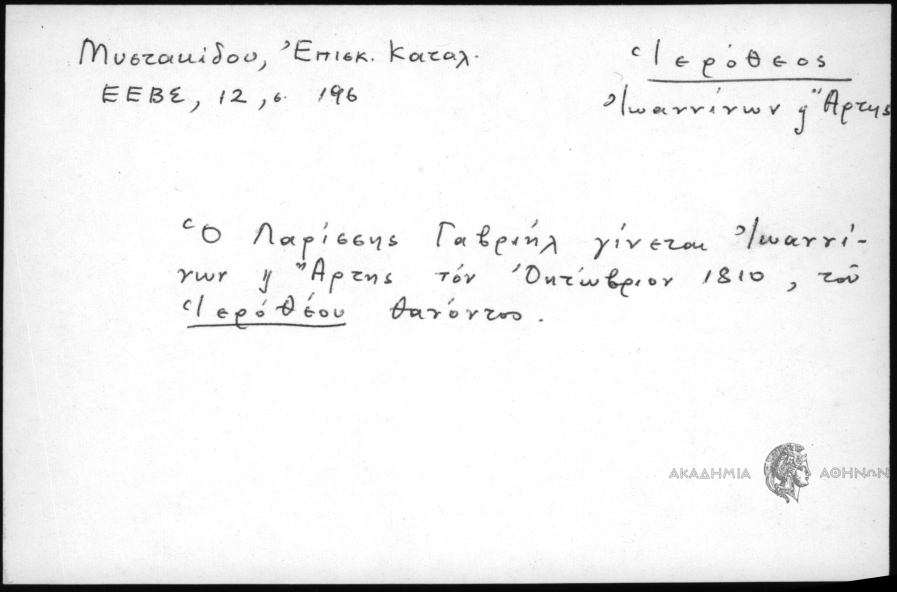 Μυστακίδου, Ἐπισκ. Καταλ.
ΕΕΒΣ, 12, σ. 196
Ἱερόθεος
Ἰωαννίνων ἢ Ἄρτης
Ὁ Λαρίσσης Γαβριήλ γίνεται Ἰωαννί-
νων ἢ Ἄρτης τόν Ὀκτώβριον 1810, τοῦ
Ἱερόθέου θανόντος.
ΑΚΑΔΗΜΙΑ ΑΘΗΝΩΝ